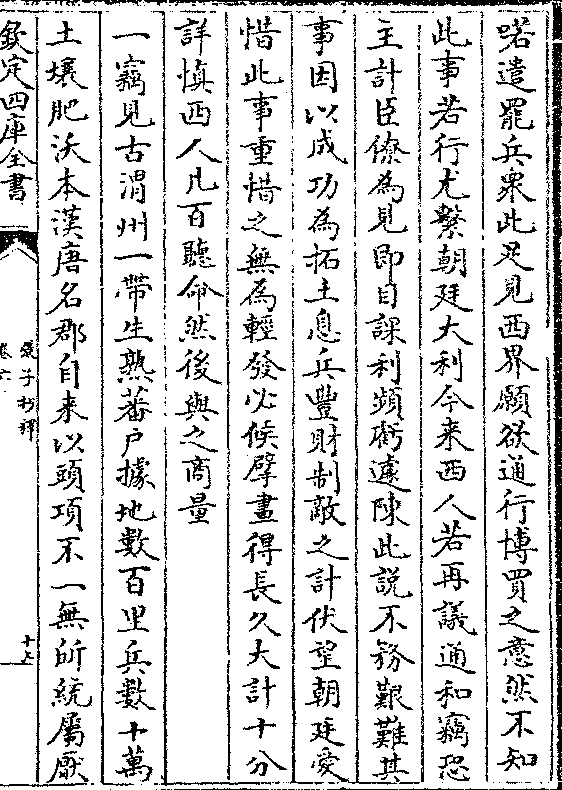 喏遣罷兵衆此足見西界願欲通行博買之意然不知
此事若行尤繫朝廷大利今来西人若再議通和竊恐
主計臣僚為見即目課利頻虧遽陳此說不務艱難其
事因以成功為拓土息兵豐財制敵之計伏望朝廷愛
惜此事重惜之無為輕發必候擘畫得長久大計十分
詳慎西人凡百聽命然後與之商量
一竊見古渭州一帶生熟蕃户據地數百里兵數十萬
土壤肥沃本漢唐名郡自来以頭項不一無所統屬厭
欽定四庫全書
張子抄釋
卷六